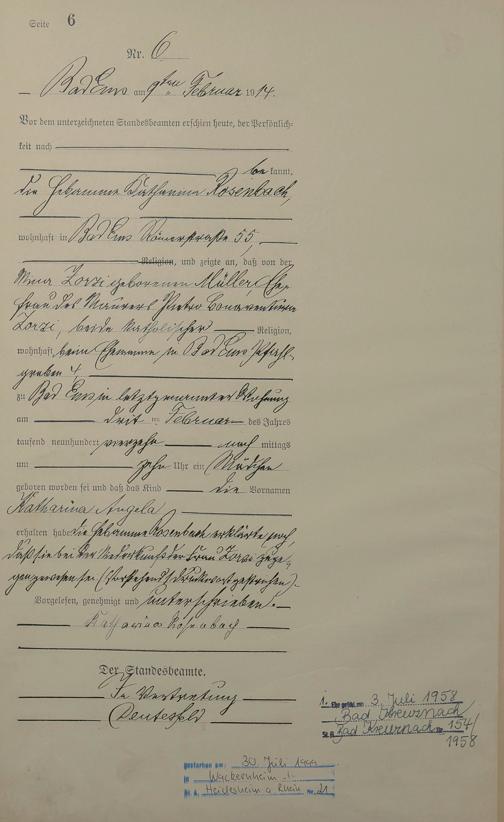 Seite 6
Nr. 6
Bad Ems am 9ten Februar 1914.
Vor dem unterzeichneten Standesbeamten erschien heute, der Persönlich-
keit nach
be kannt,
die Hebamme Katharina Rosenbach,
wohnhaft in Bad Ems Römerstraße 55,
Religion, und zeigte an, daß von der
Zorzi geborenen Müller, Ehe-
frau des Maurers Pietro Bonaventura
Zorzi, beide katholischer Religion,
wohnhaft beim Ehemanne in Bad Ems Pfahl-
graben 4,
zu Bad Ems in letztgenannter Wohnung
am drit ten Februar des Jahres
tausend neunhundert vierzehn nach mittags
um zehn Uhr ein Mädchen
geboren worden sei und daß das Kind die Vornamen
Katharina Angela
erhalten habe. Die Hebamme Rosenbach erklärte noch,
daß sie bei der Niederkunft der Frau Zorzi zuge-
gen gewesen sei. (Vorstehend Druckwort gestrichen).
Vorgelesen, genehmigt und unterschrieben.
Katharina Rosenbach
Der Standesbeamte.
In Vertretung
1. Ehe geschl. am 3. Juli 1958
Bad Kreuznach
St.A. Bad Kreuznach Nr. 154/
1958
gestorben am: 30. Juli
in Wackernheim
St. A. Heidesheim a. Rhein Nr. 21